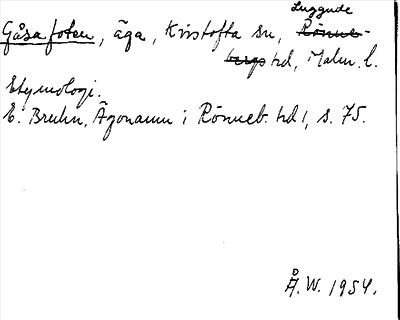 Luggude
Gåsafoten, äga, Kristofta sn, Rönne-
bergs hd, Malm. l.
Etymologi.
E. Bruhn, Ägonamn i Rönneb. hd 1, s. 75.
Å. W. 1954.